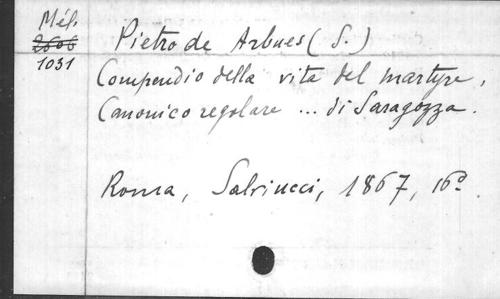 Mél.
2606
1031
Pietro de Arbues (S.)
Compendio della vita del martyre,
Canonico regolare ... di Saragozza.
Roma, Salviucci, 1867, 16º